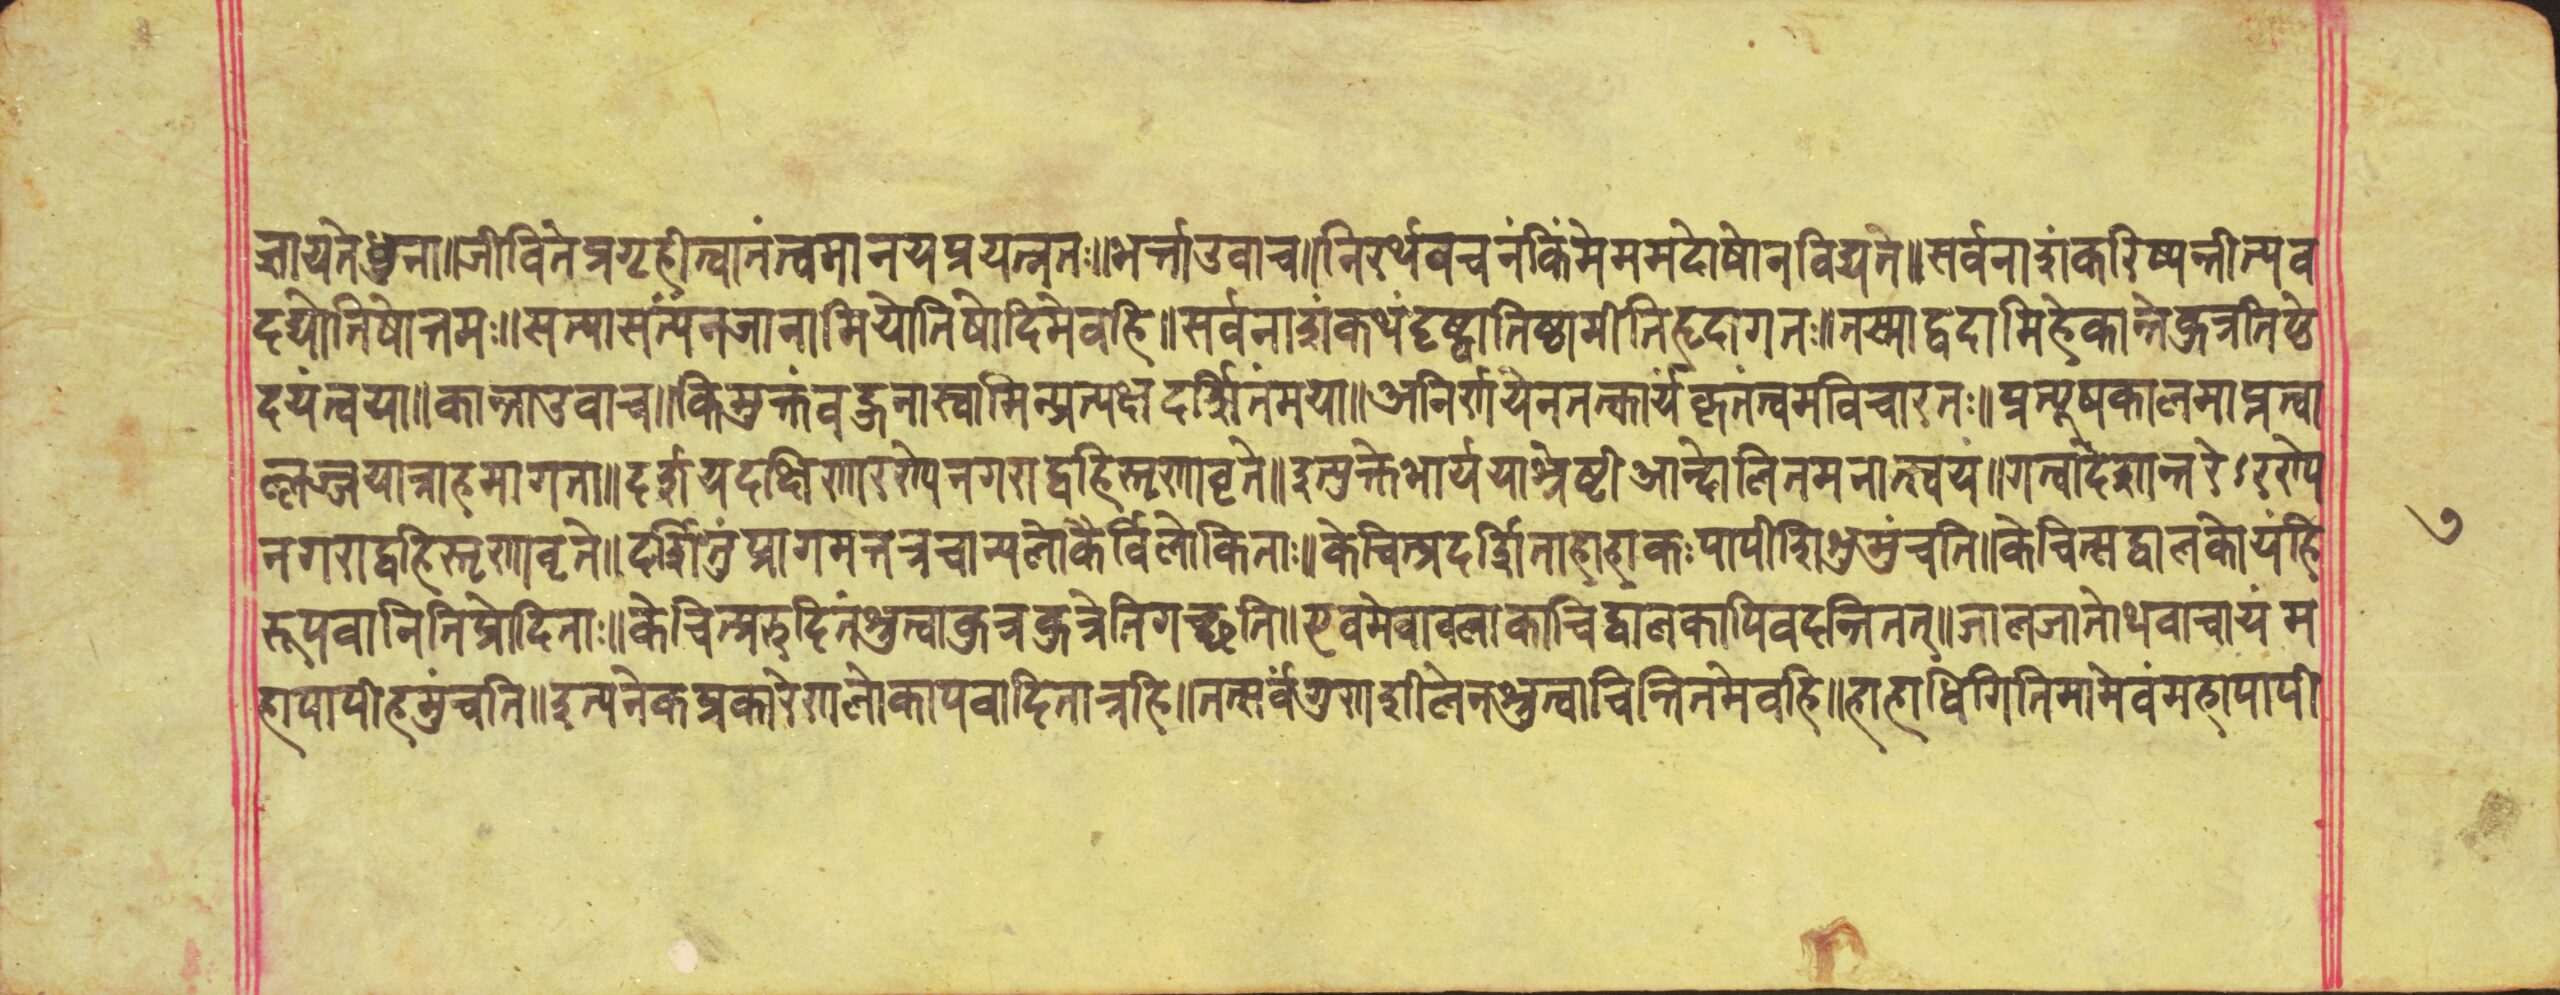 ज्ञायतेधुना॥जीवितंप्रगृहीत्वातंत्वमानयप्रयत्नतः॥भर्त्ताउवाच॥निरर्थवचनंकिंमेममदोषोनविद्यते॥सर्वनाशंकरिष्यन्तीत्यव
दद्योतिषोत्तमः॥सत्यासत्यंनजानामियोतिषोदिमेवहि॥सर्वनाशंकथंदृष्ट्वातिष्ठामीतिहृदागतः॥तस्माद्वदामिहेकान्तेकुत्रतिष्ठे
दयंत्वया॥कान्ताउवाच॥किमुक्तंवह्नुनास्वामिन्प्रत्यक्षदर्शितंमया॥अनिर्णयेनतत्कार्यकृतंत्वमविचारतः॥प्रत्यूषकालमाप्नत्वा
ल्लज्जयात्राहमागता॥दर्शयदक्षिणारण्येनगराद्वहिस्तृणावृते॥इत्युक्तेभार्ययाश्रेष्टीआन्दोलितमनात्स्वयं॥गत्वादेशान्तरेऽरण्ये
नगराद्वहिस्तृणावृते॥दर्शितुंप्रागमत्तत्रचान्यलोकैर्विलोकिताः॥केचित्प्रदर्शिताहाहाकःपापीशिशुमुंचति॥केचित्सद्वालकोयंहि
रूपवानितिप्रोदिताः॥केचित्प्ररुदितंश्रुत्वाकुत्रकुत्रेतिगच्छति॥एवमेवावलाकाचिद्वालकापिवदन्तितत्॥जालजातोथवाचायंम
हापापीहमुंचति॥इत्यनेकप्रकारेणलोकापवादितात्रहि॥तत्सर्वंगुणशीलेनश्रुत्वाचिन्तितमेवहि॥हाहाधिगितिमामेवंमहापापी
७